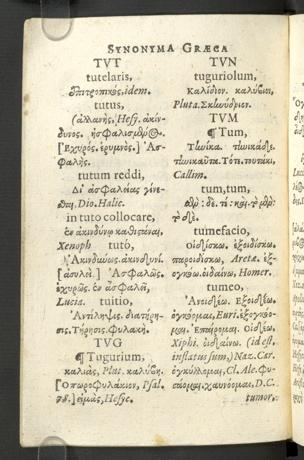 SYNONYMA GRÆCA
TVT
tutelaris,
ἐπιτροπικὸς, idem.
tutus,
Hesy. ἀκίν-
δυνος.
[Ἐχυρὸς. ἐρυμνὸς.] Ἀσ-
φαλής.
tutum reddi,
Δι' ἀσφαλείας γίνε-
ται, Dio. Halic.
in tuto collocare,
ἐν ἀκινδύνῳ
Xenoph tutò,
Ἀκινδύνως.
Ἀσφαλῶς.
ἐχυρῶς. ἐν ἀσφαλεῖ,
Lucia. tuitio,
Ἀντίληψις. διατήρη-
σις. Τήρησις. Φυλακὴ.
TVG
¶ Tugurium,
καλιὰς, Plut. καλύβη.
[Ὀπωροφυλάκιον, Psal.
78.] Hesyc.
TVN
tuguriolum,
Καλίδιον. καλύβιον,
Pluta. Σκηνύδριον.
TVM
¶ Tum,
Τηνίκα. τηνικάδε.
τηνικαῦτα. Τότε. τουτάκι,
Callim.
tum, tum,
δε· τέ· καὶ. τὸ μὲν
τὸ δὲ.
tumefacio,
Οἰδίσκω. ἐξοιδίσκω.
παροιδίσκω, Aretæ. ἐξ-
ογκῶ. οἰδαίνω, Homer.
tumeo,
Ἀνοιδέω. Ἐξοιδέω.
ὀγκόομαι, Euri. ἐξογκόο-
μαι. Ἐπαίρομαι. Οἰδέω,
Xiphi. οἰδαίνω. (id est,
inflatus sum,) Naz. Car.
ὀγκύλλομαι, Cl. Ale. Φυ-
σάομαι, χαυνόομαι, D.C.
tumor,